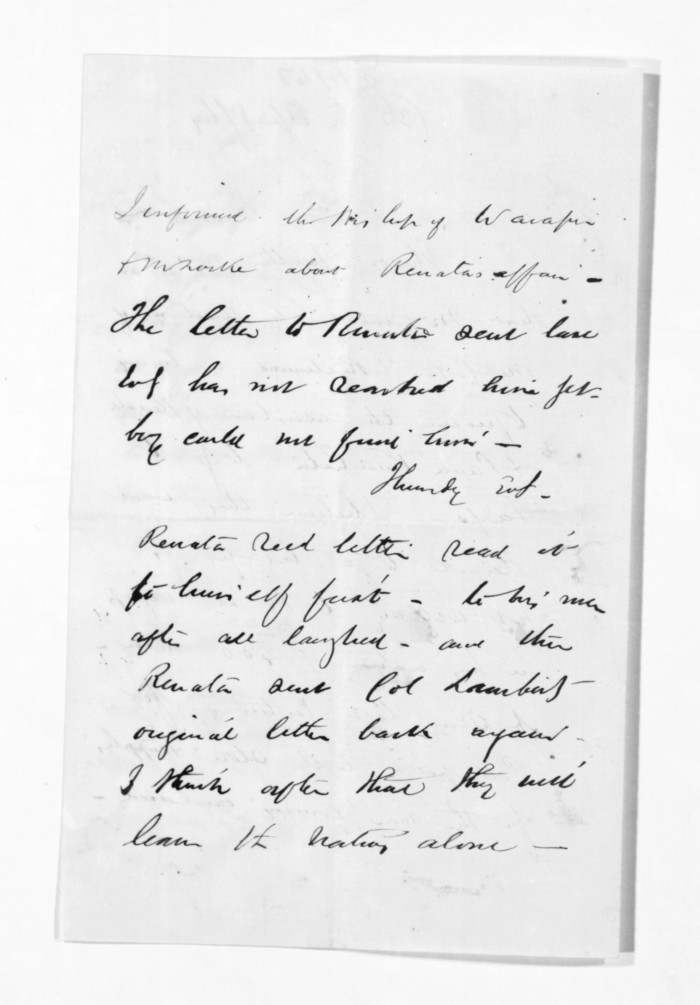 I informed the Bishop of Waiapu
& Mr Locke about Renatas affair -
The letter to Renata sent last
Evg has not reached him yet -
boy could not find him -
Thursdy Evg -
Renata recd letter read it
to himself first - to his men
after all laughed - and then
Renata sent Col Lamberts
original letter back again -
I think after that they will
leave the Natives alone -